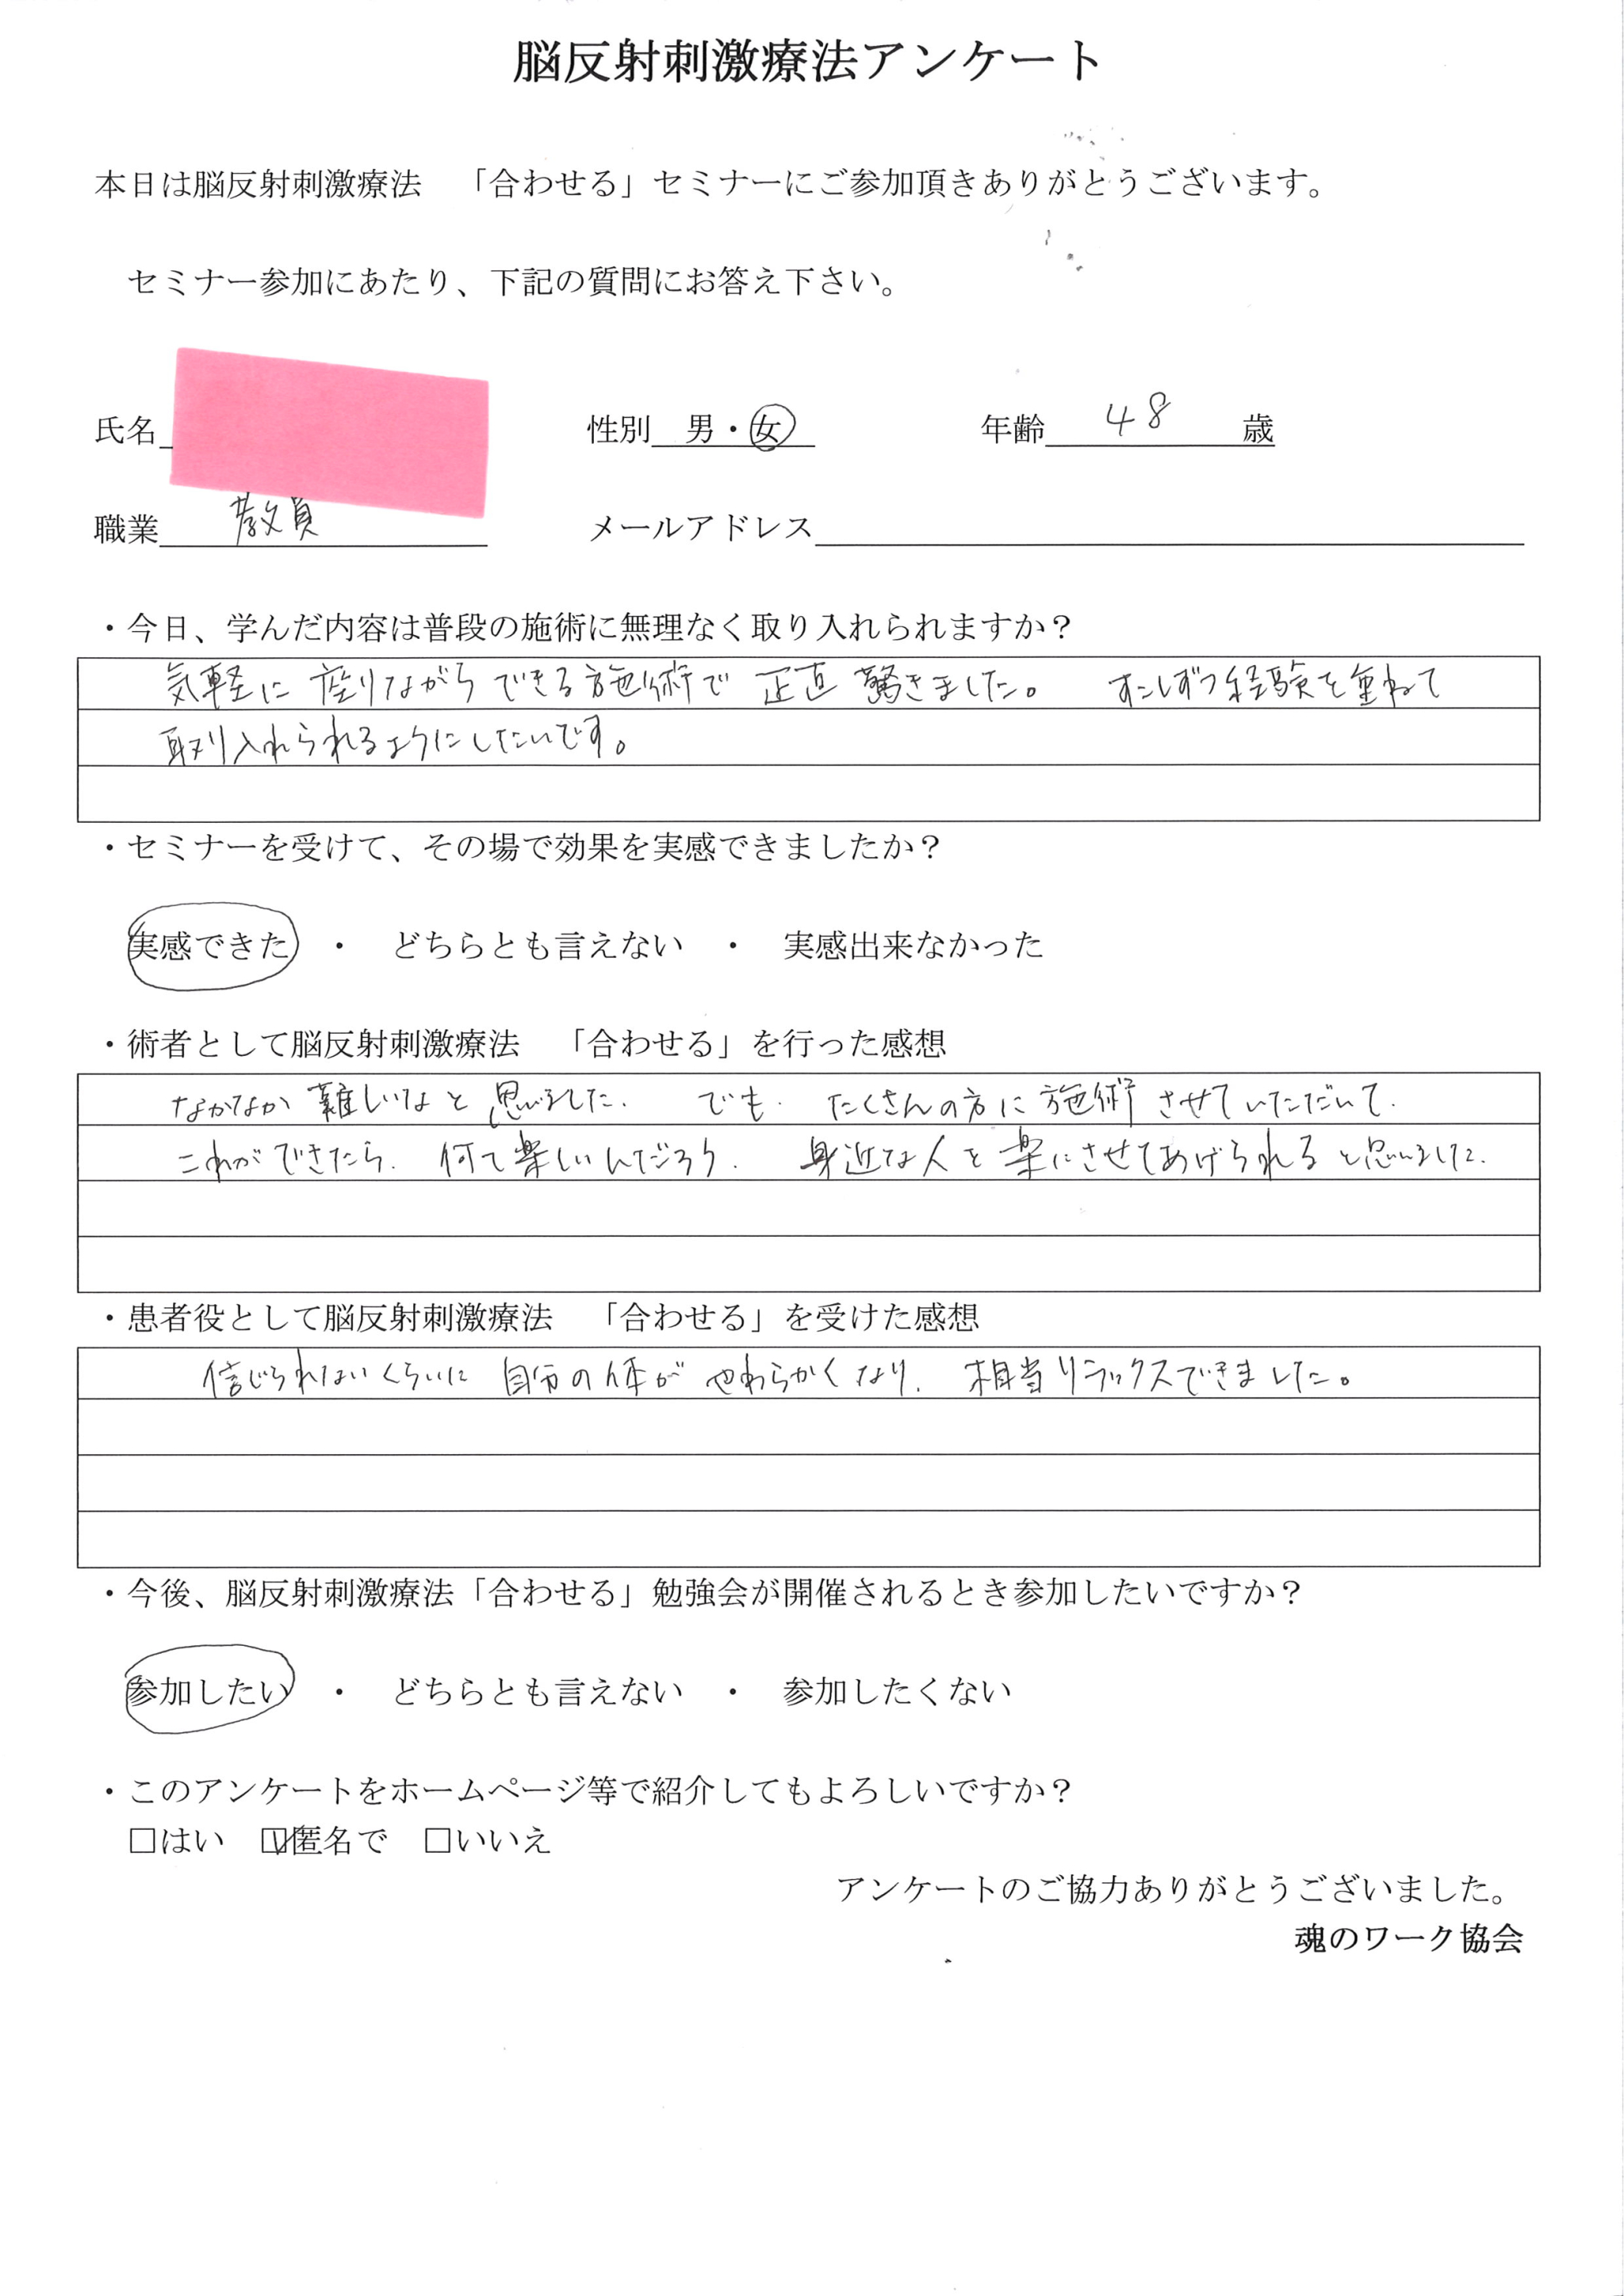 脳反射刺激療法アンケート
本日は脳反射刺激療法　「合わせる」セミナーにご参加頂きありがとうございます。
セミナー参加にあたり、下記の質問にお答え下さい。
氏名　性別　男・女　年齢　48　歳
職業　教員　メールアドレス
・今日、学んだ内容は普段の施術に無理なく取り入れられますか？
気軽に座りながらできる施術で正直驚きました。　すこしずつ経験を重ねて
取り入れられるようにしたいです。
・セミナーを受けて、その場で効果を実感できましたか？
実感できた　・　どちらとも言えない　・　実感出来なかった
・術者として脳反射刺激療法　「合わせる」を行った感想
なかなか難しいなと思いました.　でも.　たくさんの方に施術させていただいて.
これができたら.　何て楽しいんだろう.　身近な人を楽にさせてあげられると思いました.
・患者役として脳反射刺激療法　「合わせる」を受けた感想
信じられないくらいに自分の体がやわらかくなり.　相当リラックスできました。
・今後、脳反射刺激療法「合わせる」勉強会が開催されるとき参加したいですか？
参加したい　・　どちらとも言えない　・　参加したくない
・このアンケートをホームページ等で紹介してもよろしいですか？
□はい　☑匿名で　□いいえ
アンケートのご協力ありがとうございました。
魂のワーク協会